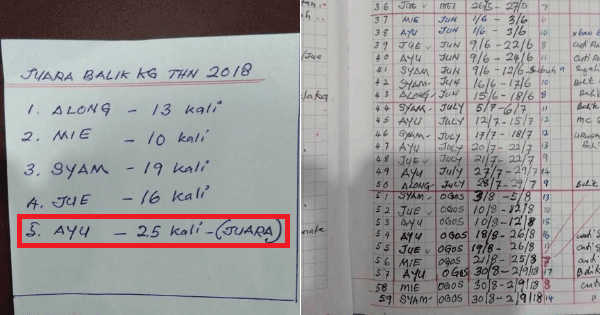 JUARA BALIK KG THN 2018
1. ALONG - 13 kali
2. MIE - 10 kali
3. SYAM - 19 kali
4. JUE - 16 kali
5. AYU - 25 kali - (JUARA)
36 JUE MEI 26/5 - 27/5 7
37 MIE JUN 1/6 - 3/6 6
38 AYU JUN 1/6 - 3/6 10
39 JUE JUN 9/6 - 22/6 8
40 AYU JUN 9/6 - 24/6 11
41 SYAM JUN 9/6 - 12/6 Subuh 9
42 SYAM JUN 16/6 - 17/6 10
43 ALONG JUN 15/6 - 18/6 8
44 SYAM JULY 5/7 - 6/7 11
45 AYU JULY 12/7 - 15/7 12
46 SYAM JULY 17/7 - 18/7 12
47 AYU JULY 20/7 - 22/7 13
48 JUE JULY 21/7 - 22/7 9
49 AYU JULY 27/7 - 29/7 14
50 ALONG JULY 28/7 - 29/7 9
51 SYAM OGOS 3/8 - 5/8 13
52 JUE OGOS 10/8 - 12/8 10
53 AYU OGOS 10/8 - 12/8 15
54 AYU OGOS 18/8 - 26/8 16
55 JUE OGOS 19/8 - 26/8 11
56 MIE OGOS 21/8 - 25/8 7
57 AYU OGOS 30/8 - 2/9/18 17
58 MIE OGOS 30/8 - 2/9 8
59 SYAM OGOS 30/8 - 2/9/18 14